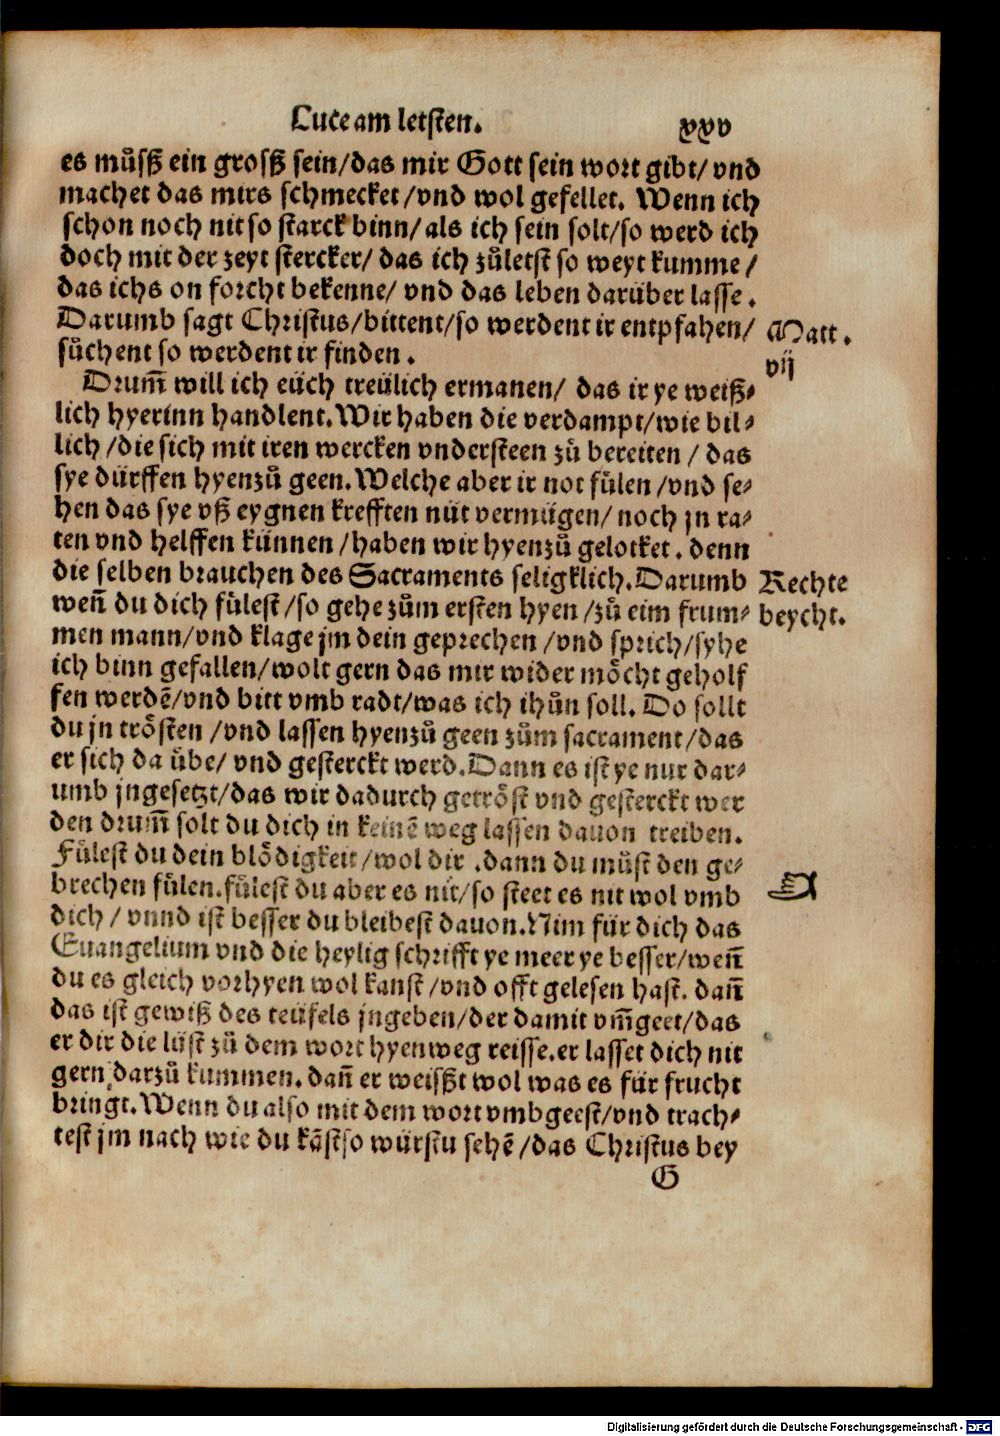 Luce am letsten. xxv
es muͤsß ein grosß sein/das mir Gott sein wort gibt/ vnd
machet das mirs schmecket/vnd wol gefellet. Wenn ich
schon noch nit so starck binn/ als ich sein solt/so werd ich
doch mit der zeyt stercker/ das ich zuͤletst so weyt kumme/
das ichs on forcht bekenne/ vnd das leben daruͤber lasse.
Darumb sagt Christus/bittent/so werdent ir entpfahen/
suͤchent so werdent ir finden.
Matt.
vij
Drum̄ will ich euͤch treuͤlich ermanen/ das ir ye weiß⸗
lich hyerinn handlent. Wir haben die verdampt/wie bil⸗
lich/die sich mit iren wercken vndersteen zuͤ bereiten/ das
sye duͤrffen hyenzuͤ geen. Welche aber ir not fuͤlen/vnd se⸗
hen das sye vß eygnen krefften nuͤt vermuͤgen/ noch jn ra⸗
ten vnd helffen kuͤnnen/haben wir hyenzuͤ gelocket. denn
die selben brauchen des Sacraments seligklich. Darumb
wen̄ du dich fuͤlest/so gehe zuͤm ersten hyen/zuͤ eim frum⸗
Rechte
beycht.
men mann/vnd klage jm dein geprechen/vnd sprich/syhe
ich binn gefallen/wolt gern das mir wider moͤcht geholf
fen werdē/vnd bitt vmb radt/was ich thuͤn soll. Do sollt
du jn troͤsten/vnd lassen hyenzuͤ geen zuͤm sacrament/das
er sich da uͤbe/ vnd gesterckt werd. Dann es ist ye nur dar⸗
umb jngesetzt/das wir dadurch getroͤst vnd gesterckt wer
den drum̄ solt du dich in keinē weg lassen dauon treiben.
Fuͤlest du dein bloͤdigkeit/wol dir. dann du muͤst den ge⸗
brechen fuͤlen. fuͤlest du aber es nit/so steet es nit wol vmb
dich/ vnnd ist besser du bleibest dauon. Nim fuͤr dich das
Euangelium vnd die heylig schrifft ye meer ye besser/wen̄
du es gleich vorhyen wol kanst/vnd offt gelesen hast. dan̄
das ist gewiß des teuͤfels jngeben/der damit vm̄geet/das
er dir die luͤst zuͤ dem wort hyenweg reisse. er lasset dich nit
gern darzuͤ kummen. dan̄ er weisßt wol was es fuͤr frucht
bringt. Wenn du also mit dem wort vmbgeest/vnd trach⸗
test jm nach wie du kāst so wuͤrstu sehē/das Christus bey
G
Digitalisierung gefördert durch die Deutsche Forschungsgemeinschaft - DFG